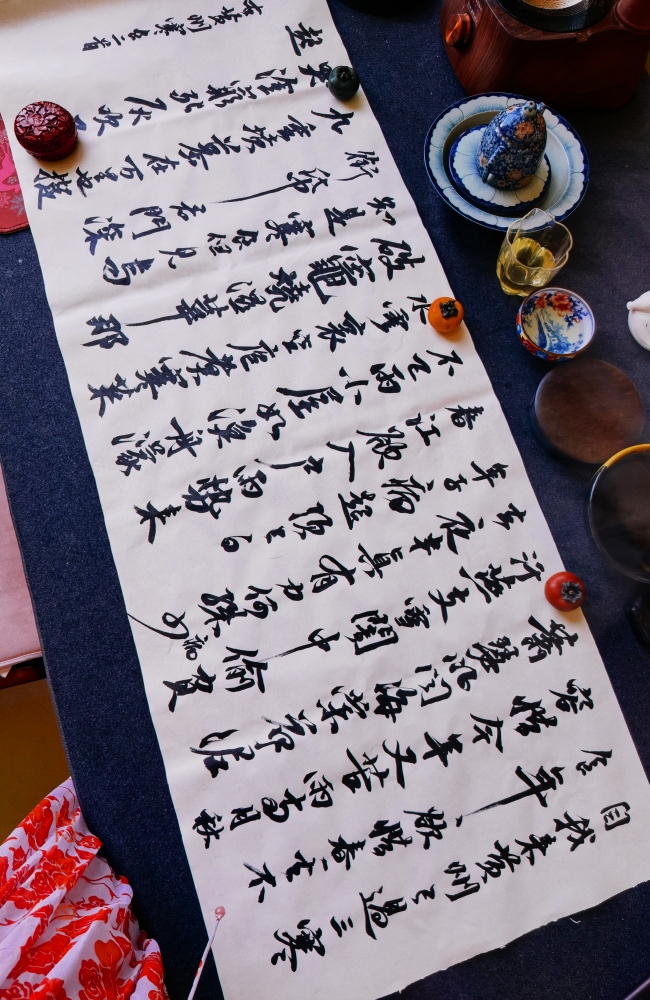 自我来黃州已過三寒
食年〻欲惜春〻去不
容惜今年又苦雨兩月秋
蕭瑟卧聞海棠花泥
汙燕支雪闇中偷負
去夜半真有力何殊病少
年子病起須已白
春江欲入戶雨勢来
不已雨小屋如漁舟濛〻
水雲裏空庖煑寒菜
破竈燒濕葦那
知是寒食但見烏
銜帋君門深
九重墳墓在万里也擬
哭塗窮死灰吹不
起
右黃州寒食二首